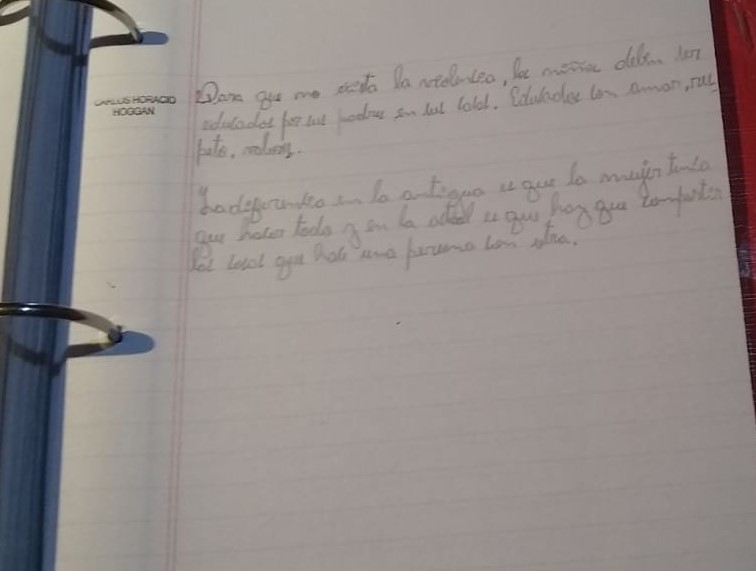 CARLOS HORACIO
HOGGAN
Para que no exista la violencia, los niños deben ser
educados por sus padres en sus casas. Educados con amor, res
peto, valores.
La diferencia en la antigua es que la mujer tenía
que hacer todo y en la actual es que hay que compartir
las cosas que hace una persona con otra.